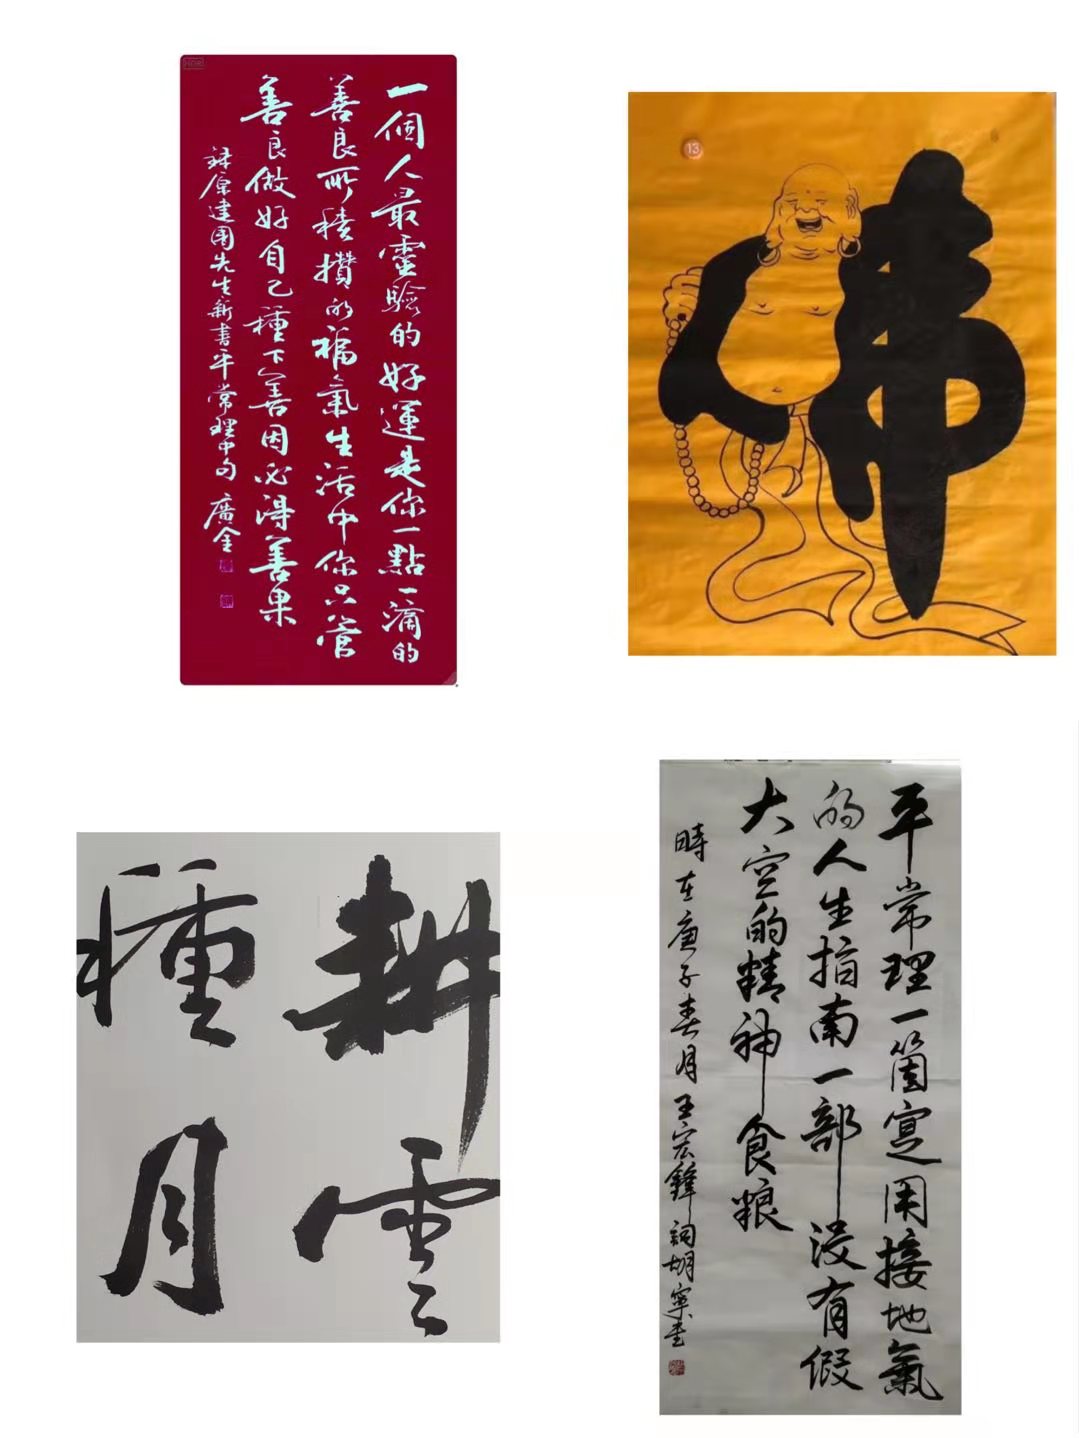 HDR
一個人最靈驗的好運是你一點一滴的
善良所積攢的福氣生活中你只管
善良做好自己種下善因必得善果
录原建国先生新書平常理中句 廣金
13
佛
耕雲
種月
平常理一箇寔用接地氣
的人生指南一部没有假
大空的精神食粮
時在庚子春月王宏鋒詞胡寧書